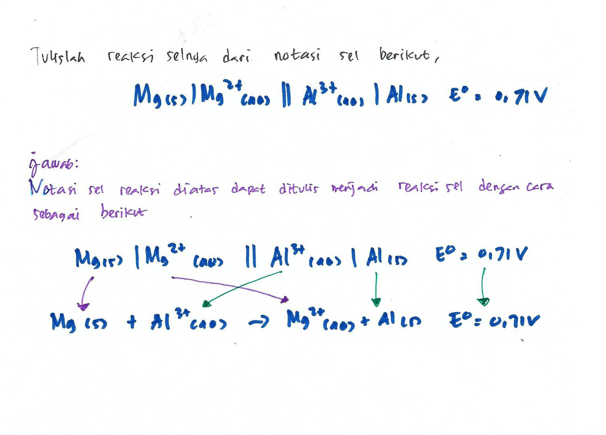 Tulislah reaksi selnya dari notasi sel berikut,
Mg(s) | Mg²⁺(aq) || Al³⁺(aq) | Al(s) E° = 0,71 V
jawab:
Notasi sel reaksi diatas dapat ditulis menjadi reaksi sel dengan cara
sebagai berikut
Mg(s) | Mg²⁺(aq) || Al³⁺(aq) | Al(s) E° = 0,71 V
Mg(s) + Al³⁺(aq) → Mg²⁺(aq) + Al(s) E° = 0,71 V